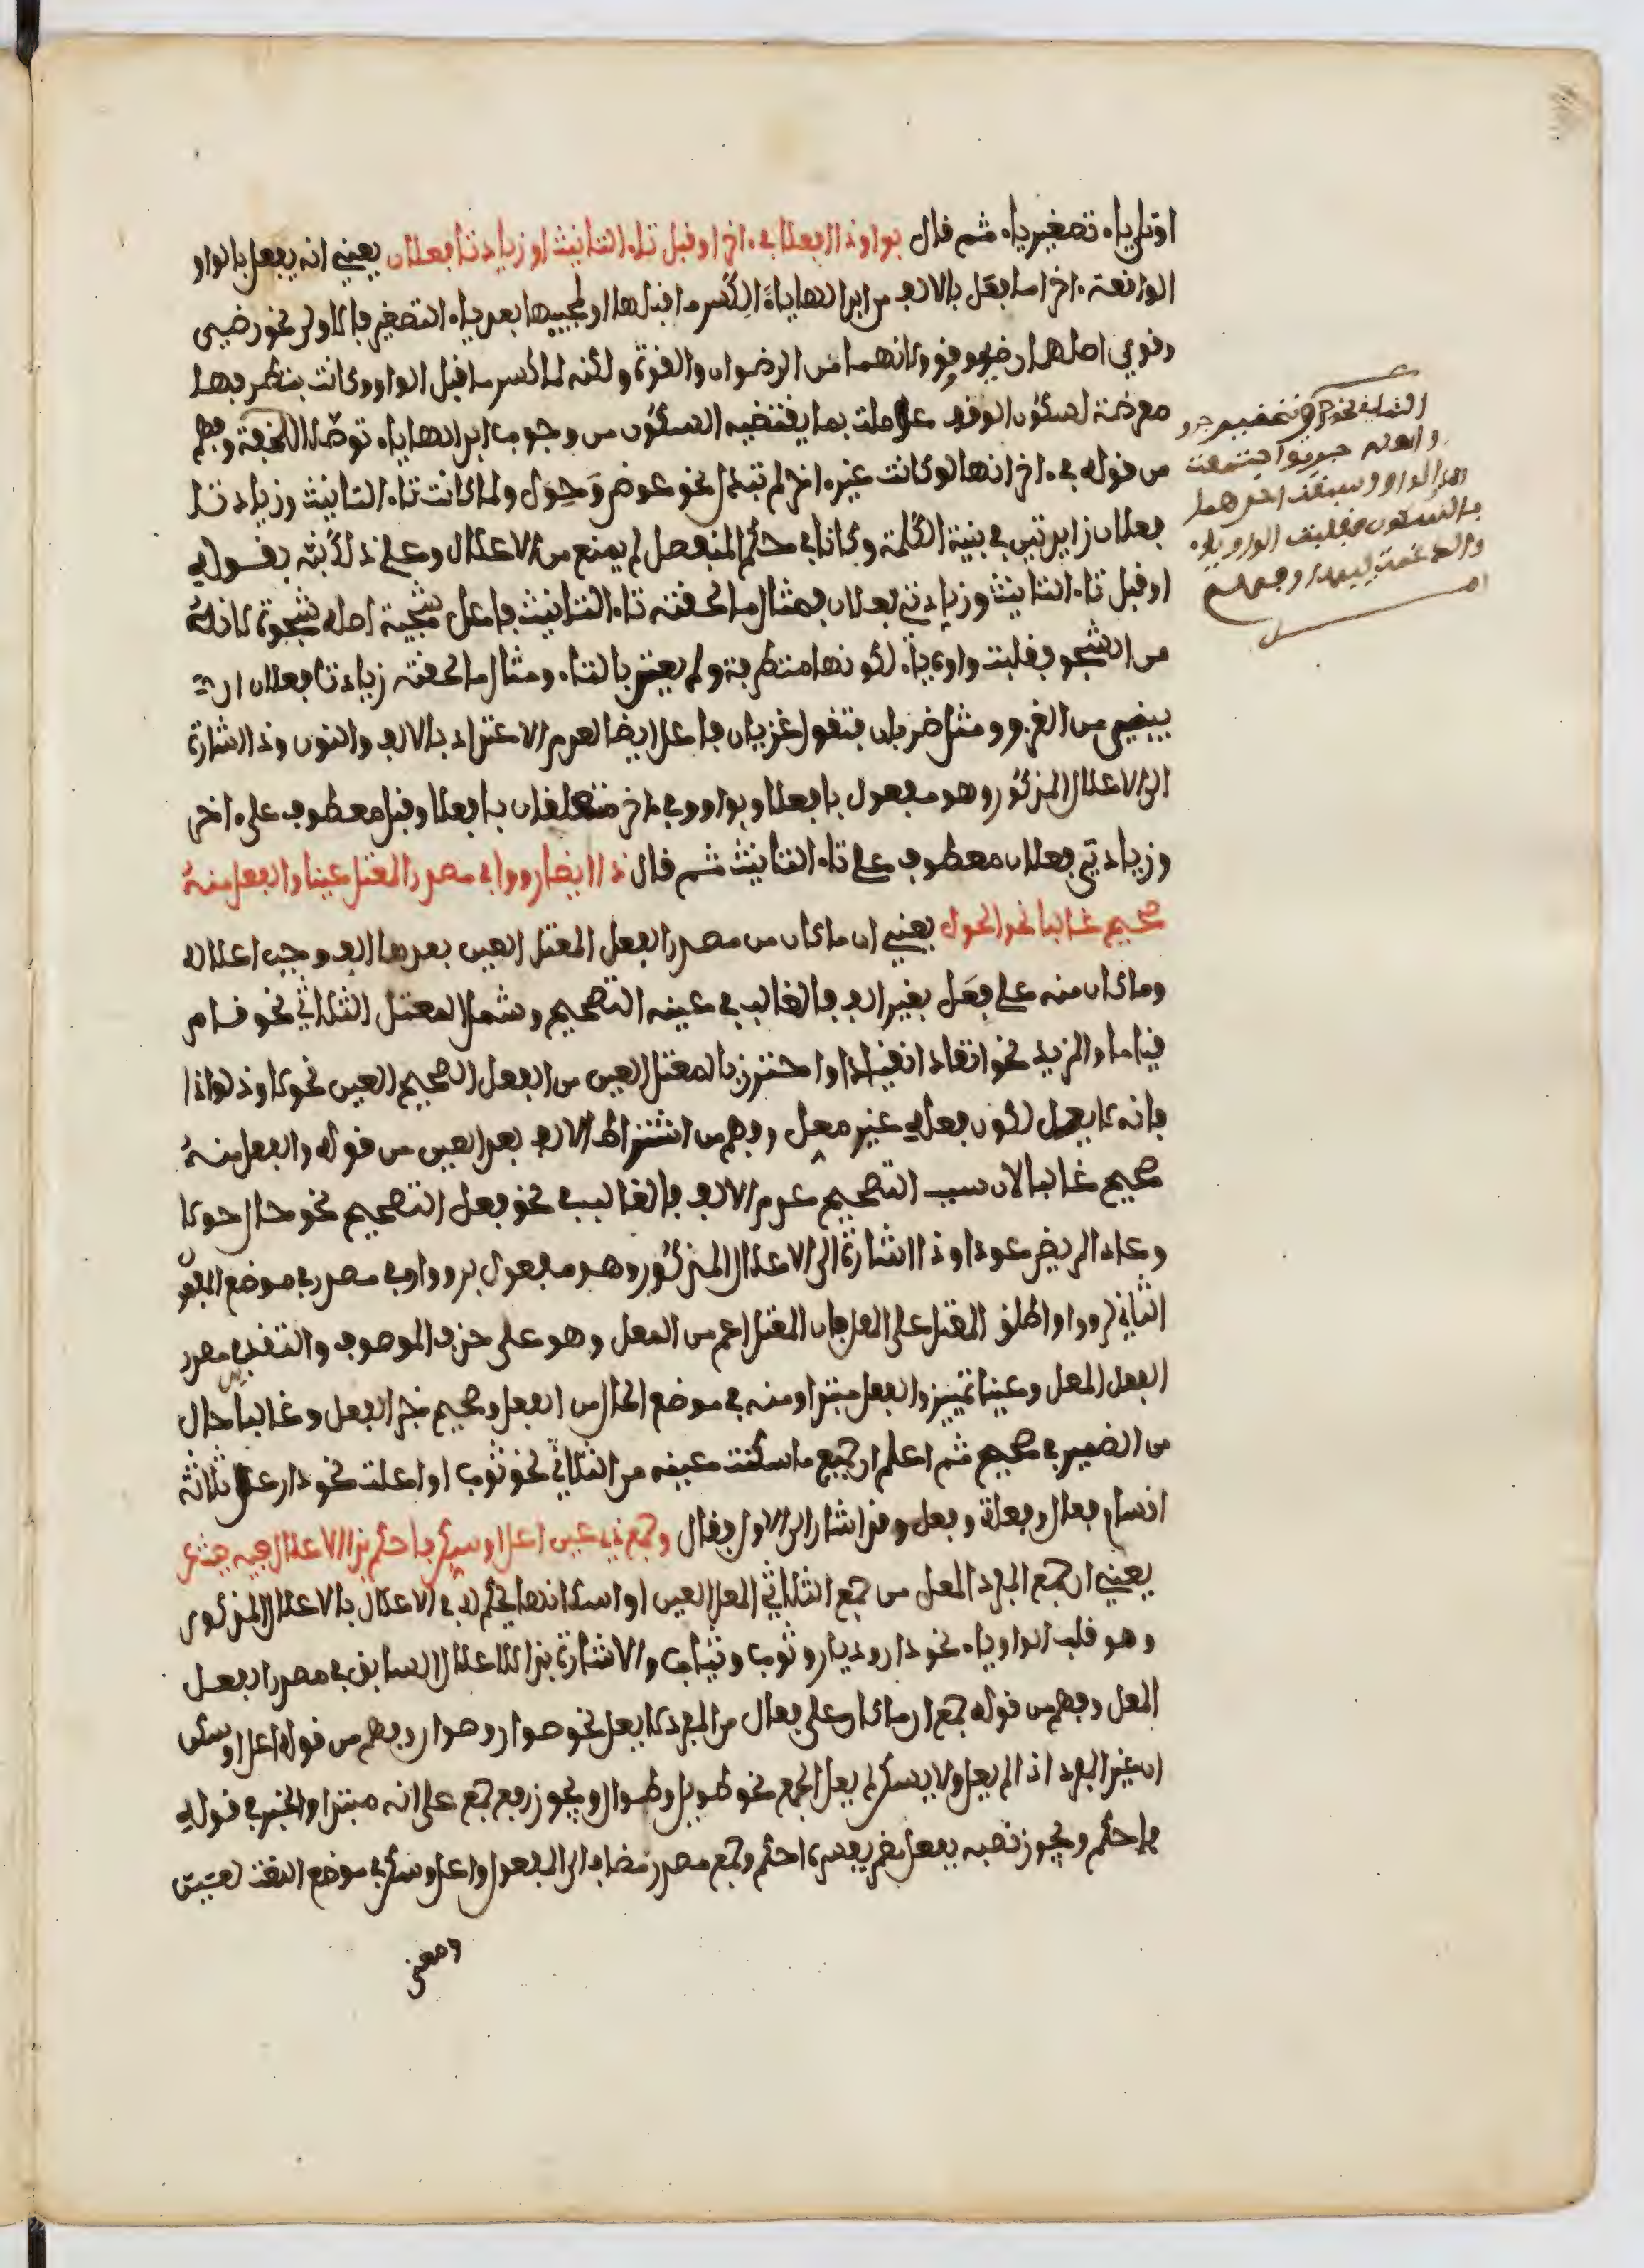 او تلي ياء تصغير ياء ثم قال بواو ذا افعلا في ءاخر او قبل تاء التانيث او زيادتا فعلان يعني انه يفعل بالواو
الواقعة ءاخرا ما يفعل بالالف من ابدالها ياء لكسر ما قبلها او لمجييها بعد ياء التصغير فالاول نحو رضي
وقوي اصلهما رضو وقوو لانهما من الرضوان والقوة ولكنه لما كسر ما قبل الواو وكانت بتطرفها
معرضة لسكون الوقف عوملت بما يقتضيه السكون من وجوب ابدالها ياء توصلا للخفة وفهم
من قوله في ءاخر انها لو كانت غير ءاخر لم تبدل نحو عوض وحول ولما كانت تاء التانيث وزيادتا
فعلان زايدتين في بنية الكلمة وكانا في حكم المنفصل لم يمنع من الاعلال وعلى ذلك نبه بقوله
او قبل تاء التانيث وزيادتي فعلان فمثال ما لحقته تاء التانيث فاعل شجية اصله شجوة لانه
من الشجو فقلبت واوه ياء لكونها متطرفة ولم يعتد بالتاء ومثال ما لحقته زيادتا فعلان ان
يبنى من الغزو ومثل ضربان فتقول غزيان فاعل ايضا لعدم الاعتداد بالالف والنون وذا اشارة
الى الاعلال المذكور وهو مفعول بافعلا وبواو وفي ءاخر متعلقان بافعلا وقبل معطوف على ءاخر
وزيادتي فعلان معطوف على تاء التانيث ثم قال ذا ايضا رووا في مصدر المعتل عينا والفعل منه
صحيح غالبا نحو الحول يعني ان ما كان من مصدر الفعل المعتل العين بعدها الف وجب اعلاله
وما كان منه على فعل بغير الف فالغالب في عينه التصحيح وشمل المعتل الثلاثي نحو قام
قياما والمزيد نحو انقاد انقيادا واحترز بالمعتل العين من الفعل الصحيح العين نحو لاوذ لواذا
فانه لا يعل لكون فعله غير معل وفهم من اشتراط الالف بعد العين من قوله والفعل منه
صحيح غالبا لان سبب التصحيح عدم الالف فالغالب في نحو فعل التصحيح نحو حال حولا
وعاد المريض عودا وذا اشارة الى الاعلال المذكور وهو مفعول برووا وفي مصدر في موضع المفعول
الثاني لرووا واطلق المعتل على المعل فان المعتل اعم من المعل وهو على حذف الموصوف والتقدير مصدر
الفعل المعل وعينا تمييز والفعل مبتدا ومنه في موضع الحال من الفعل وصحيح خبر الفعل وغالبا حال
من الضمير في صحيح ثم اعلم ان جميع ما سكنت عينه من الثلاثي نحو ثوب او اعلت نحو دار على ثلاثة
اقسام فعال وفعلة وفعل وقد اشار الى الاول فقال وجمع ذي عين اعل او سكن فاحكم بذا الاعلال فيه حيث عن
يعني ان جمع المفرد المعل من جمع الثلاثي المعل العين او اسكانها يحكم له في الاعلال بالاعلال المذكور
وهو قلب الواو ياء نحو دار وديار وثوب وثياب والاشارة بذا للاعلال السابق في مصدر الفعل
المعل وفهم من قوله جمع ان ما كان على فعال من المفرد لا يعل نحو صوار وصوار وفهم من قوله اعل او سكن
ان غير المفرد اذا لم يعل ولا يسكن لم يعل الجمع نحو طويل وطوال ويجوز رفع جمع على انه مبتدا والخبر في قوله
فاحكم ويجوز نصبه بفعل مضمر يفسره احكم وجمع مصدر مضاف الى المفعول واعل او سكن في موضع النعت لعين
ومعنى
الثمانية نحو جري تصغير جرو
واصله جريو اجتمعت
الياء والواو وسبقت احداهما
بالسكون فقلبت الواو ياء
وادغمت الياء